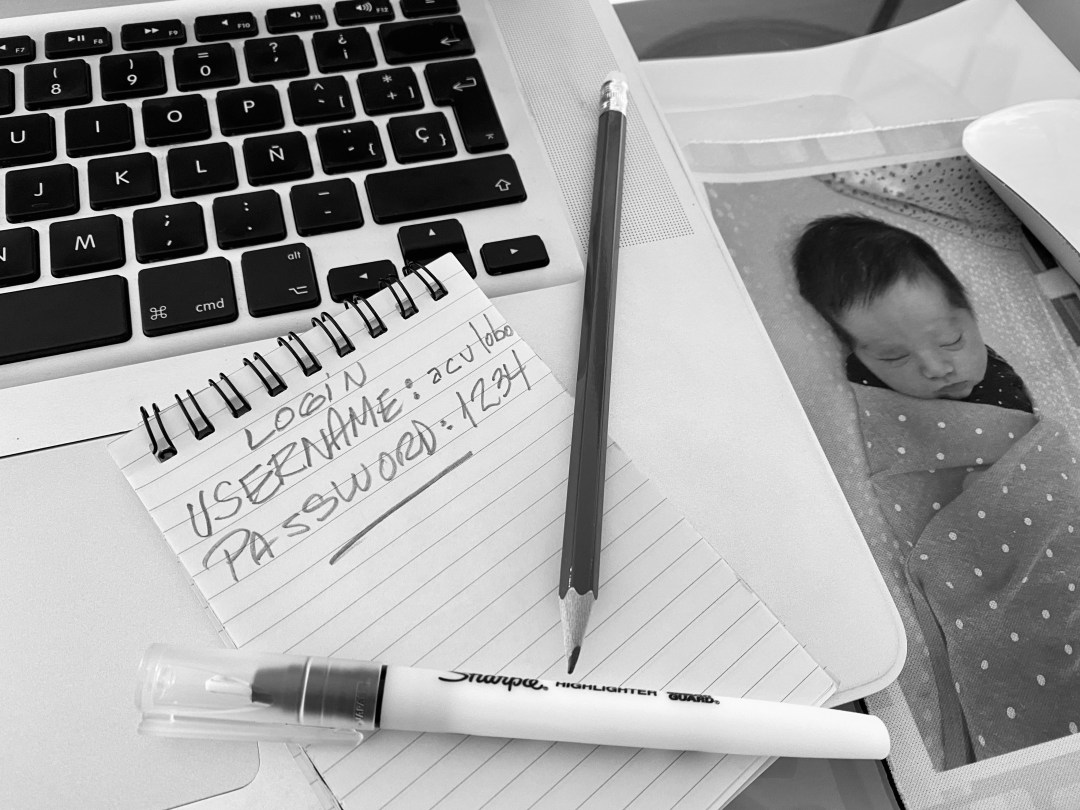 F7 F8 F9 F10 F11 F12
( 8 ) 9 = 0 ? ' ¿ ¡
U I O P ^ ` [ * + ]
J K L Ñ ¨ ´ { Ç }
N M ; , : . _ -
⌘ cmd alt ⌥
LOGiN
USERNAME: aculobo
PASSWORD: 1234
Sharpie® HIGHLIGHTER GUARD®